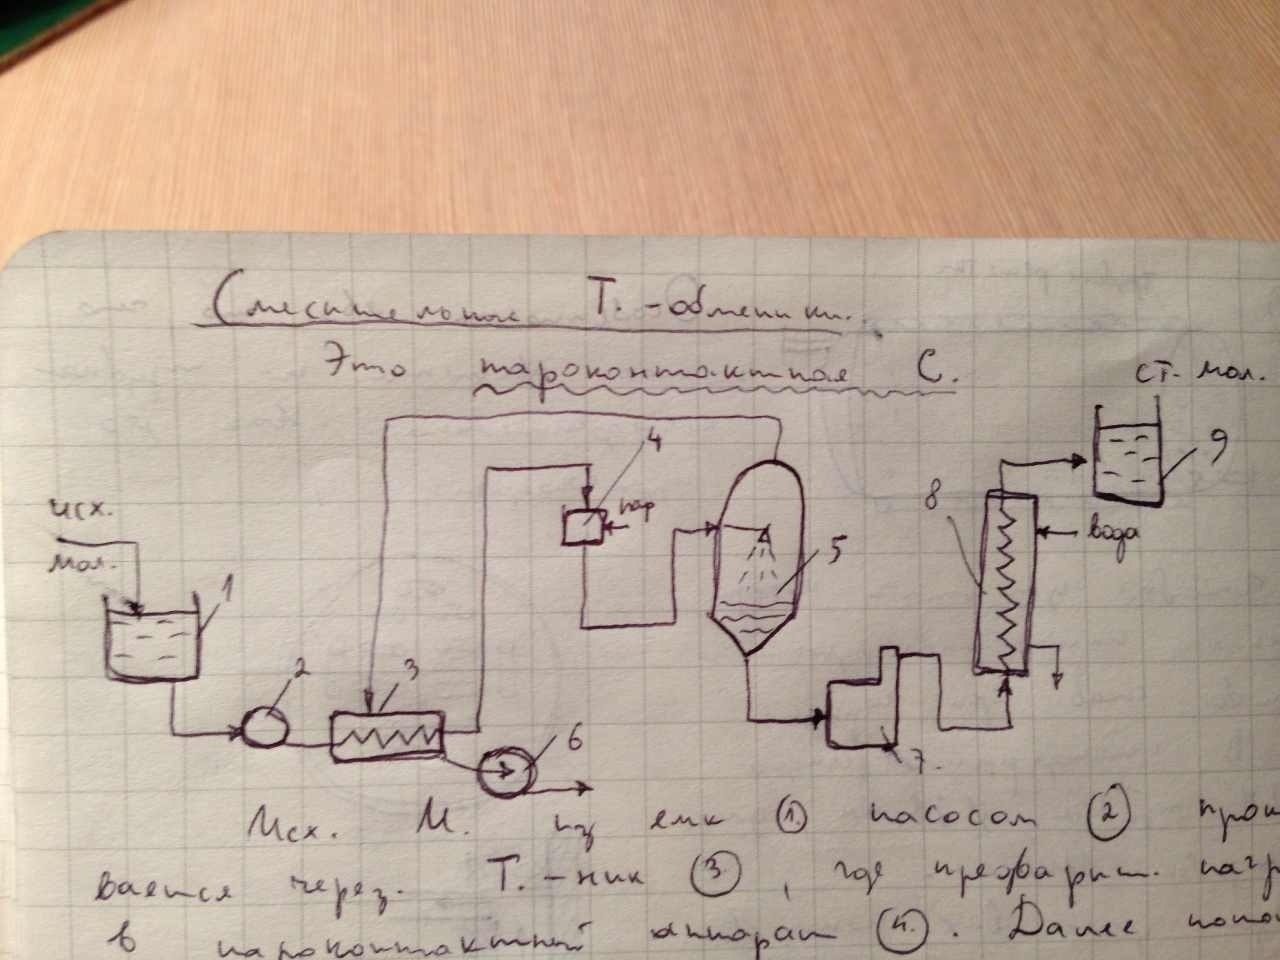 Смесительные Т.-обменники.
Это пароконтактная С.
ст. мол.
исх.
мол.
1
2
3
4
пар
5
6
7.
8
вода
9
Исх. М. из емк ①. насосом ② прок
вается через. Т.-ник ③, где предварит. нагр
в пароконтактный аппарат ④. Далее пото